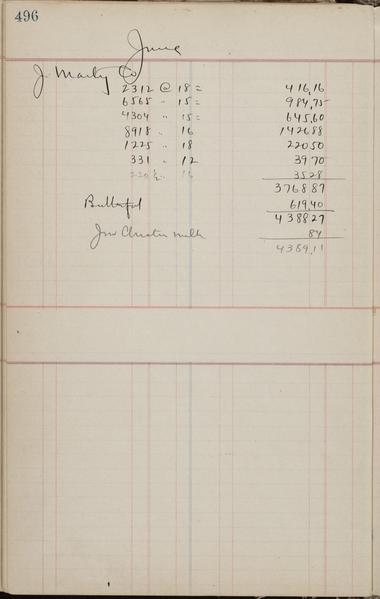 496
June
J. Marty Co
2312 @ 18 = 416,16
6565 " 15 = 984,75
4304 " 15 = 645,60
8918 " 16 142688
1225 " 18 22050
331 " 12 3970
220 ½ " 16 3528
376887
Butterfat 619,40
438827
milk 84
4389,11